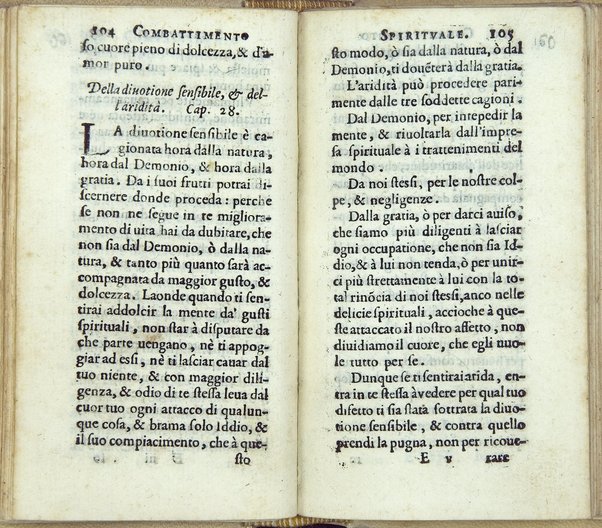 104 COMBATTIMENTO
so, cuore pieno di dolcezza, & d'a-
mor puro.
Della diuotione sensibile, & del-
l'aridità. Cap. 28.
LA diuotione sensibile è ca-
gionata hora dalla natura,
hora dal Demonio, & hora dalla
gratia. Da i suoi frutti potrai di-
scernere donde proceda: perche
se non ne segue in te migliora-
mento di uita hai da dubitare, che
non sia dal Demonio, ò dalla na-
tura, & tanto più quanto sarà ac-
compagnata da maggior gusto, &
dolcezza. Laonde quando ti sen-
tirai addolcir la mente da' gusti
spirituali, non star à disputare da
che parte uengano, nè ti appog-
giar ad essi, nè ti lasciar cauar dal
tuo niente, & con maggior dili-
genza, & odio di te stessa leua dal
cuor tuo ogni attacco di qualun-
que cosa, & brama solo Iddio, &
il suo compiacimento, che à que-
sto
SPIRITVALE. 105
sto modo, ò sia dalla natura, ò dal
Demonio, ti douéterà dalla gratia.
L'aridità può procedere pari-
mente dalle tre soddette cagioni.
Dal Demonio, per intepedir la
mente, & riuoltarla dall'impre-
sa spirituale à i trattenimenti del
mondo.
Da noi stessi, per le nostre col-
pe, & negligenze.
Dalla gratia, ò per darci auiso,
che siamo più diligenti à lasciar
ogni occupatione, che non sia Id-
dio, & à lui non tenda, ò per unir-
ci più strettamente à lui con la to-
tal rinõcia di noi stessi, anco nelle
delicie spirituali, accioche à que-
ste attaccato il nostro affetto, non
diuidiamo il cuore, che egli uuo-
le tutto per se.
Dunque se ti sentirai arida, en-
tra in te stessa à vedere per qual tuo
difetto ti sia stata sottrata la diuo-
tione sensibile, & contra quello
prendi la pugna, non per ricoue-
E v rare